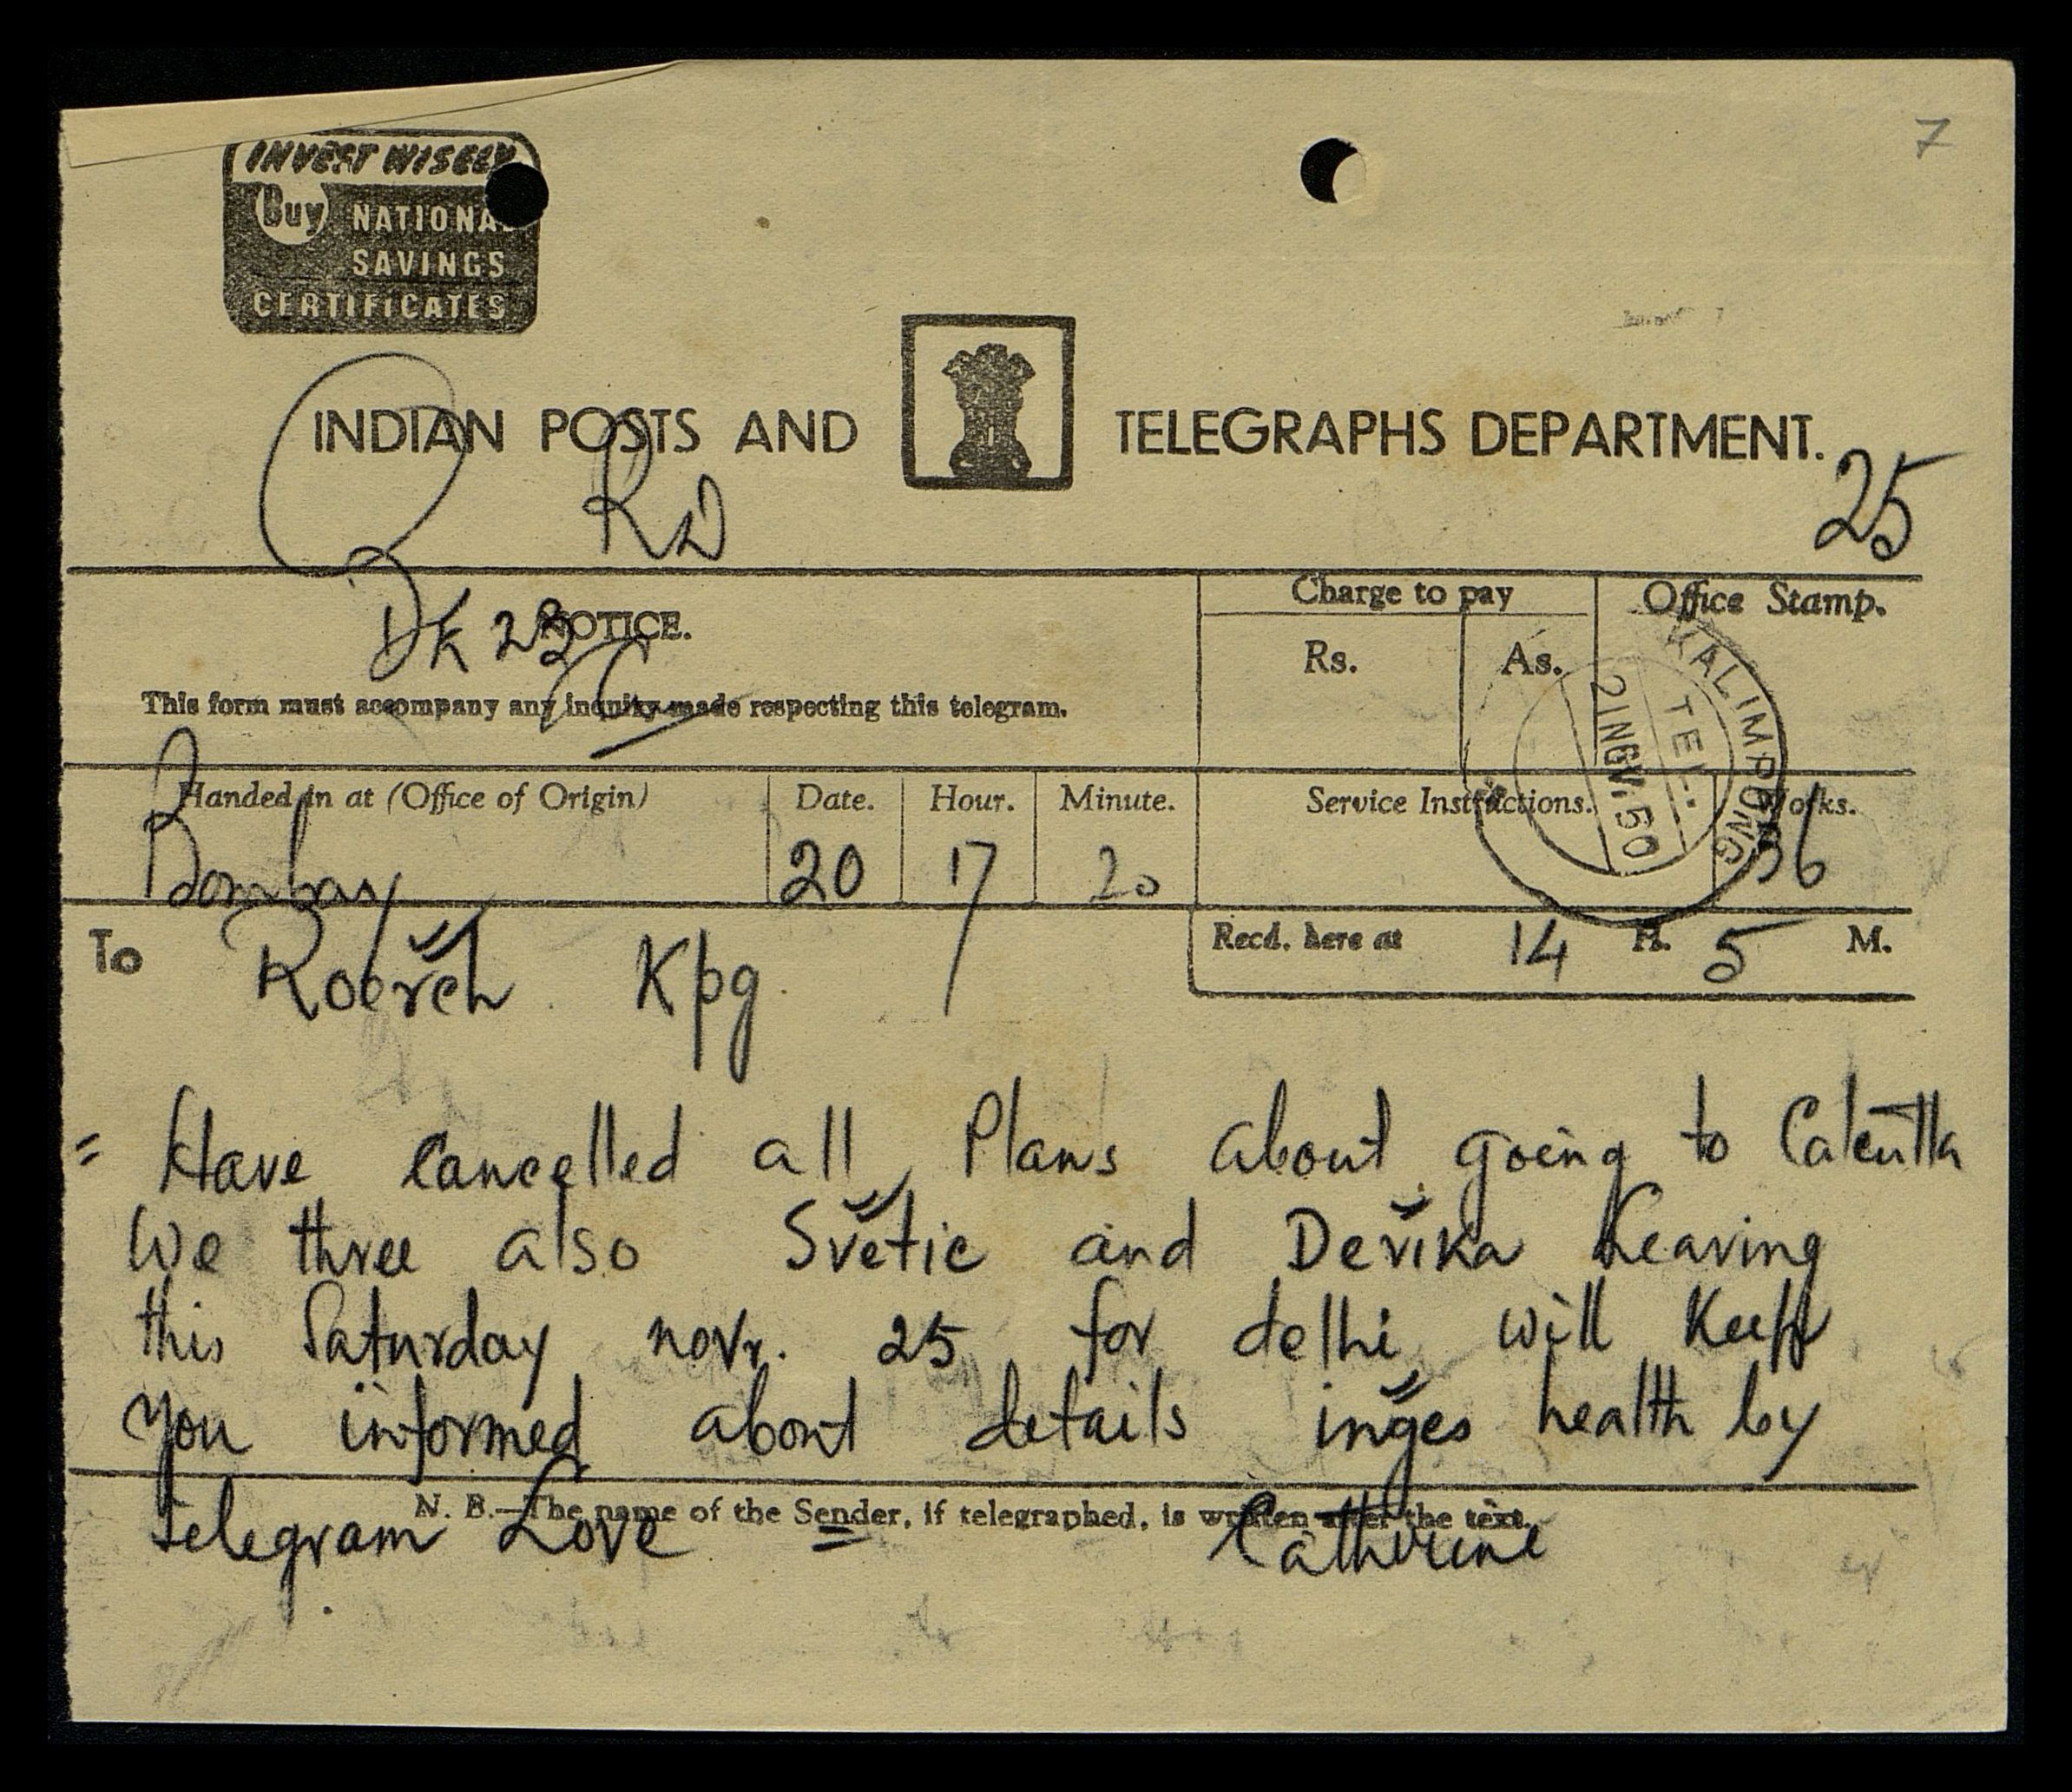 7
INVEST WISELY
Buy NATIONAL
SAVINGS
CERTIFICATES
INDIAN POSTS AND TELEGRAPHS DEPARTMENT.
25
RD
DK 23
NOTICE.
This form must accompany any inquiry made respecting this telegram.
Charge to pay
Rs. As.
Office Stamp.
KALIMPONG
TEL.
21NOV.50
Handed in at (Office of Origin) Date. Hour. Minute. Service Instructions. Works.
Bombay 20 17 20 36
To Roerch Kpg
Recd. here at 14 H. 5 M.
= Have cancelled all Plans about going to Calcutta
We three also Svetic and Devika Leaving
this Saturday novr. 25 for delhi will Keep
you informed about details inges health by
telegram Love = Catherine
N. B.—The name of the Sender, if telegraphed, is written after the text.